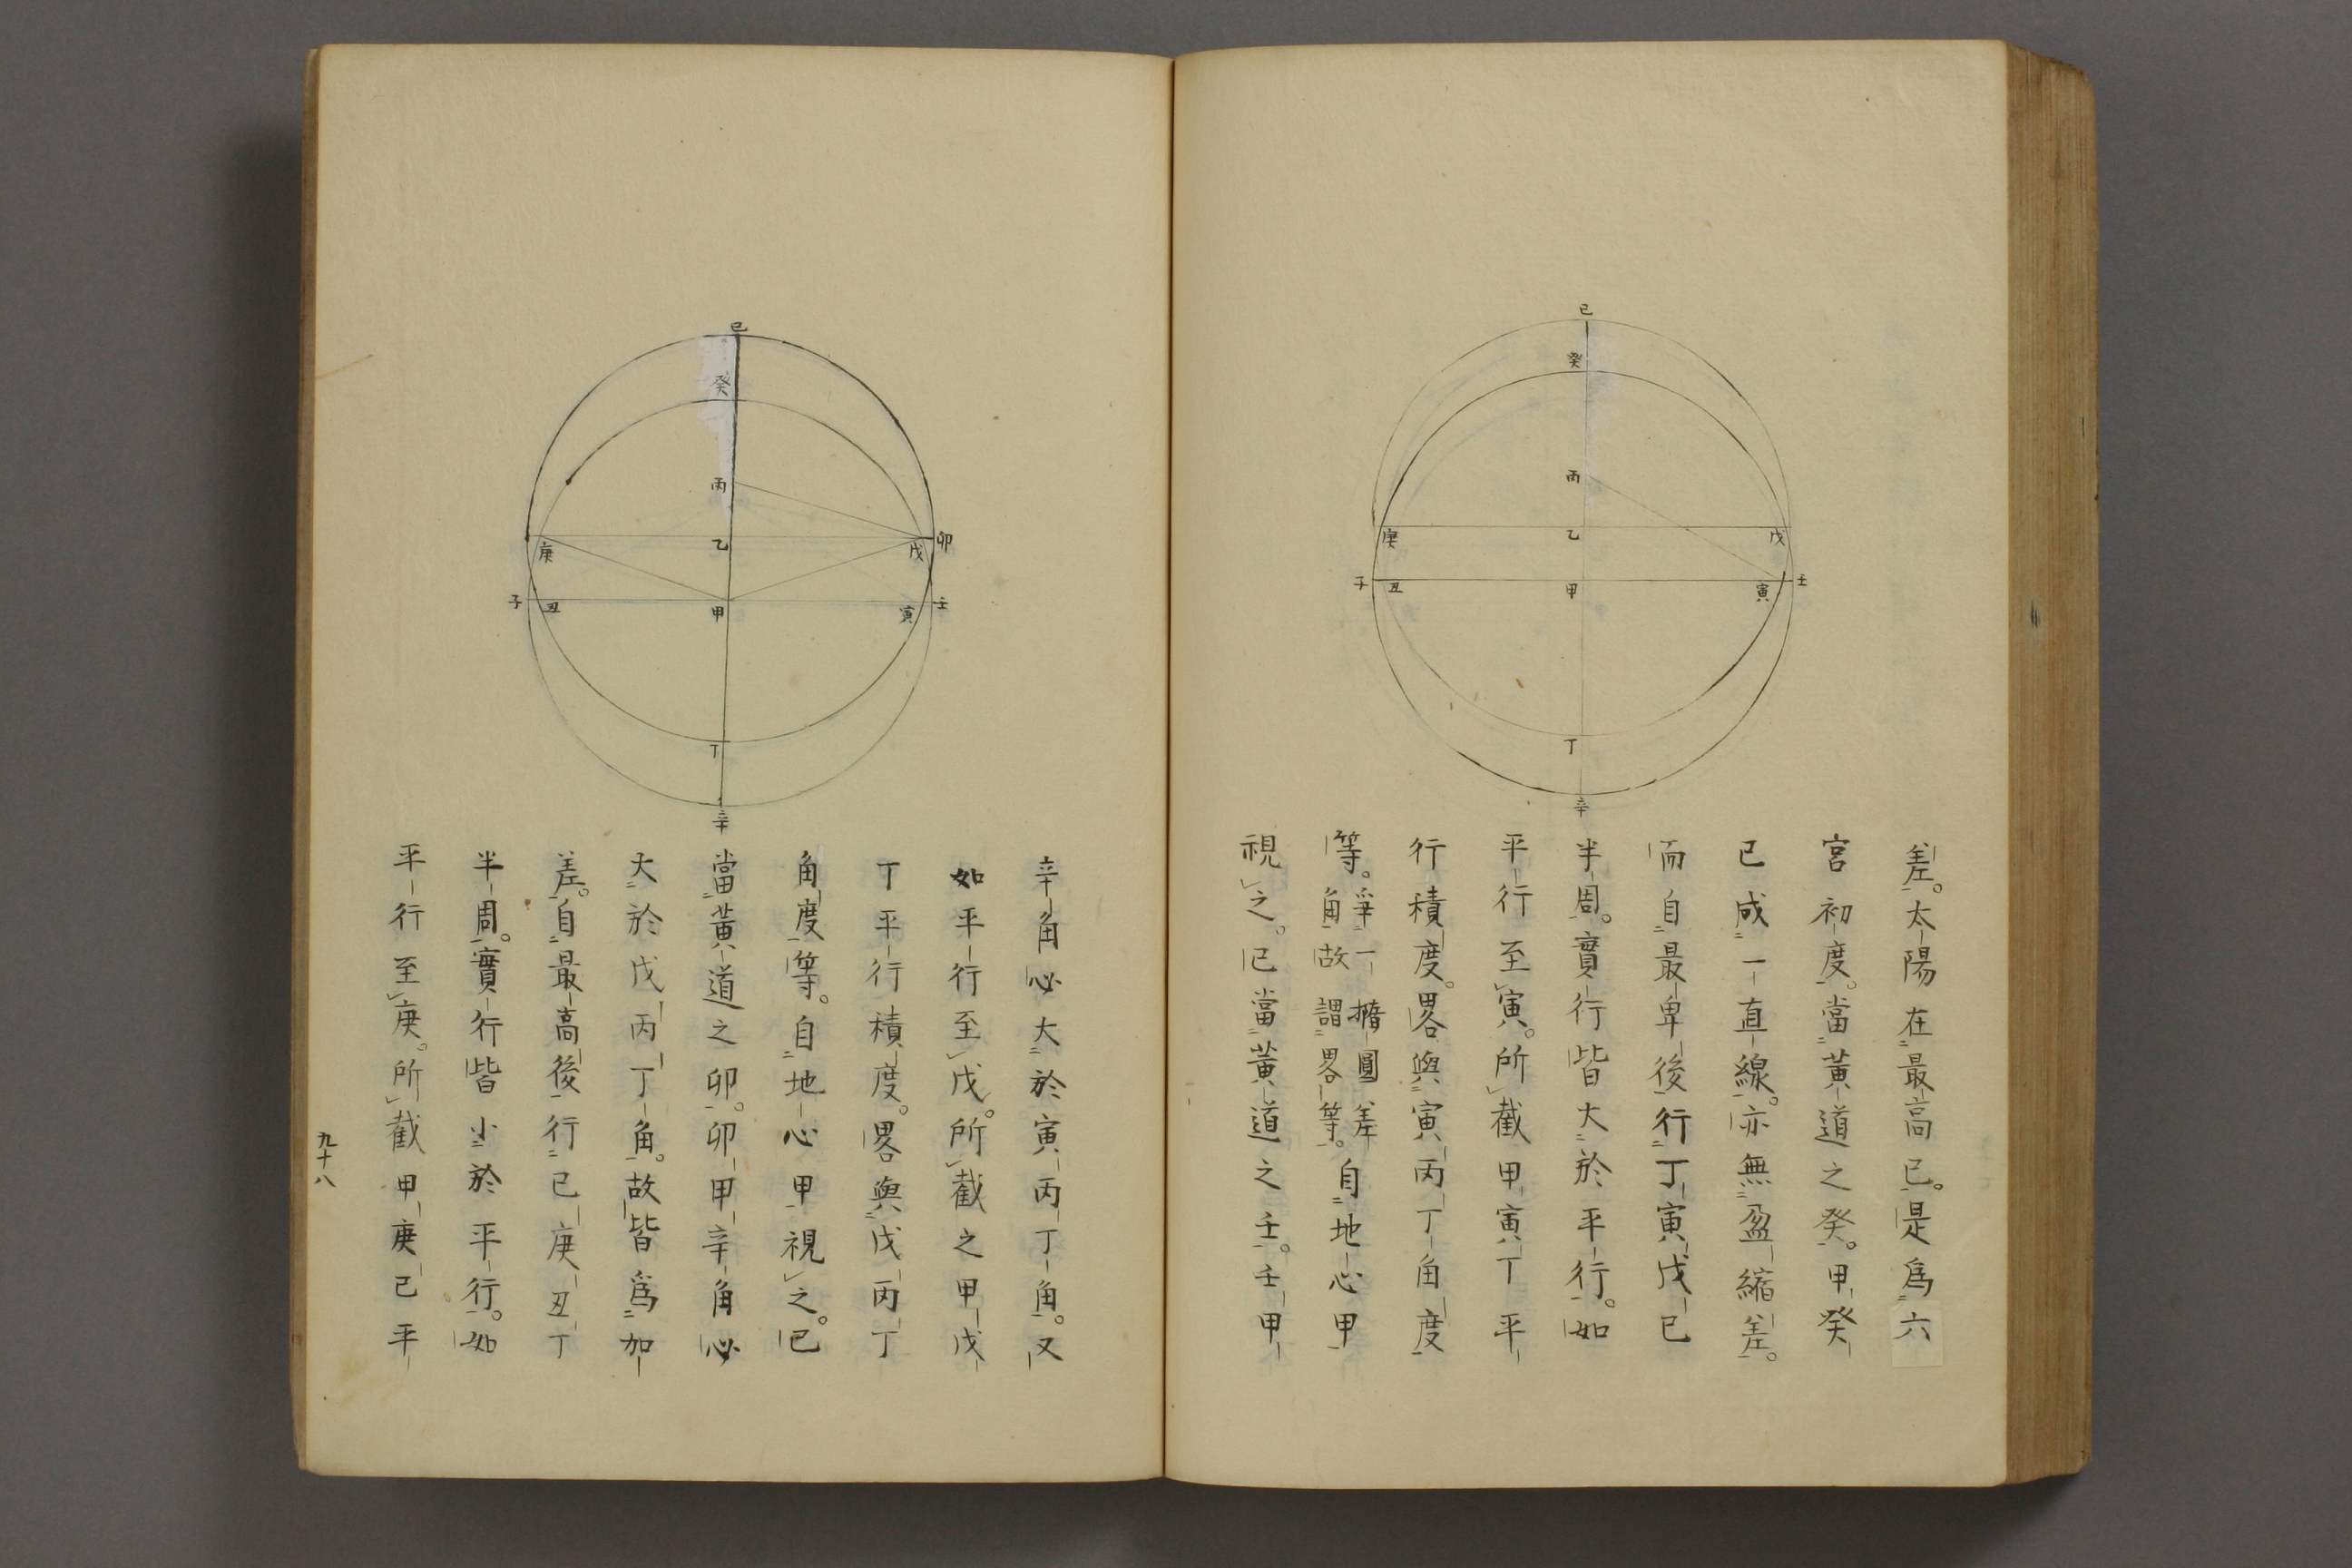 己
癸
丙
庚
乙
戊
子
丑
甲
寅
壬
丁
辛
差。太陽在最高己。是爲六
宮初度。當黃道之癸。甲癸
己成一直線。亦無盈縮差。
而自最卑後行丁寅戊己
半周。實行皆大於平行。如
平行至寅。所截甲寅丁平
行積度。畧與寅丙丁角度
等。爭一撱圓差
角故謂畧等。自地心甲
視之。已當黃道之壬。壬甲
己
癸
丙
卯
庚
乙
戊
子
丑
甲
寅
壬
丁
辛
辛角必大於寅丙丁角。又
如平行至戊。所截之甲戊
丁平行積度。畧與戊丙丁
角度等。自地心甲視之。已
當黃道之卯。卯甲辛角必
大於戊丙丁角。故皆爲加
差。自最高後行己庚丑丁
半周。實行皆小於平行。如
平行至庚。所截甲庚己平
九十八